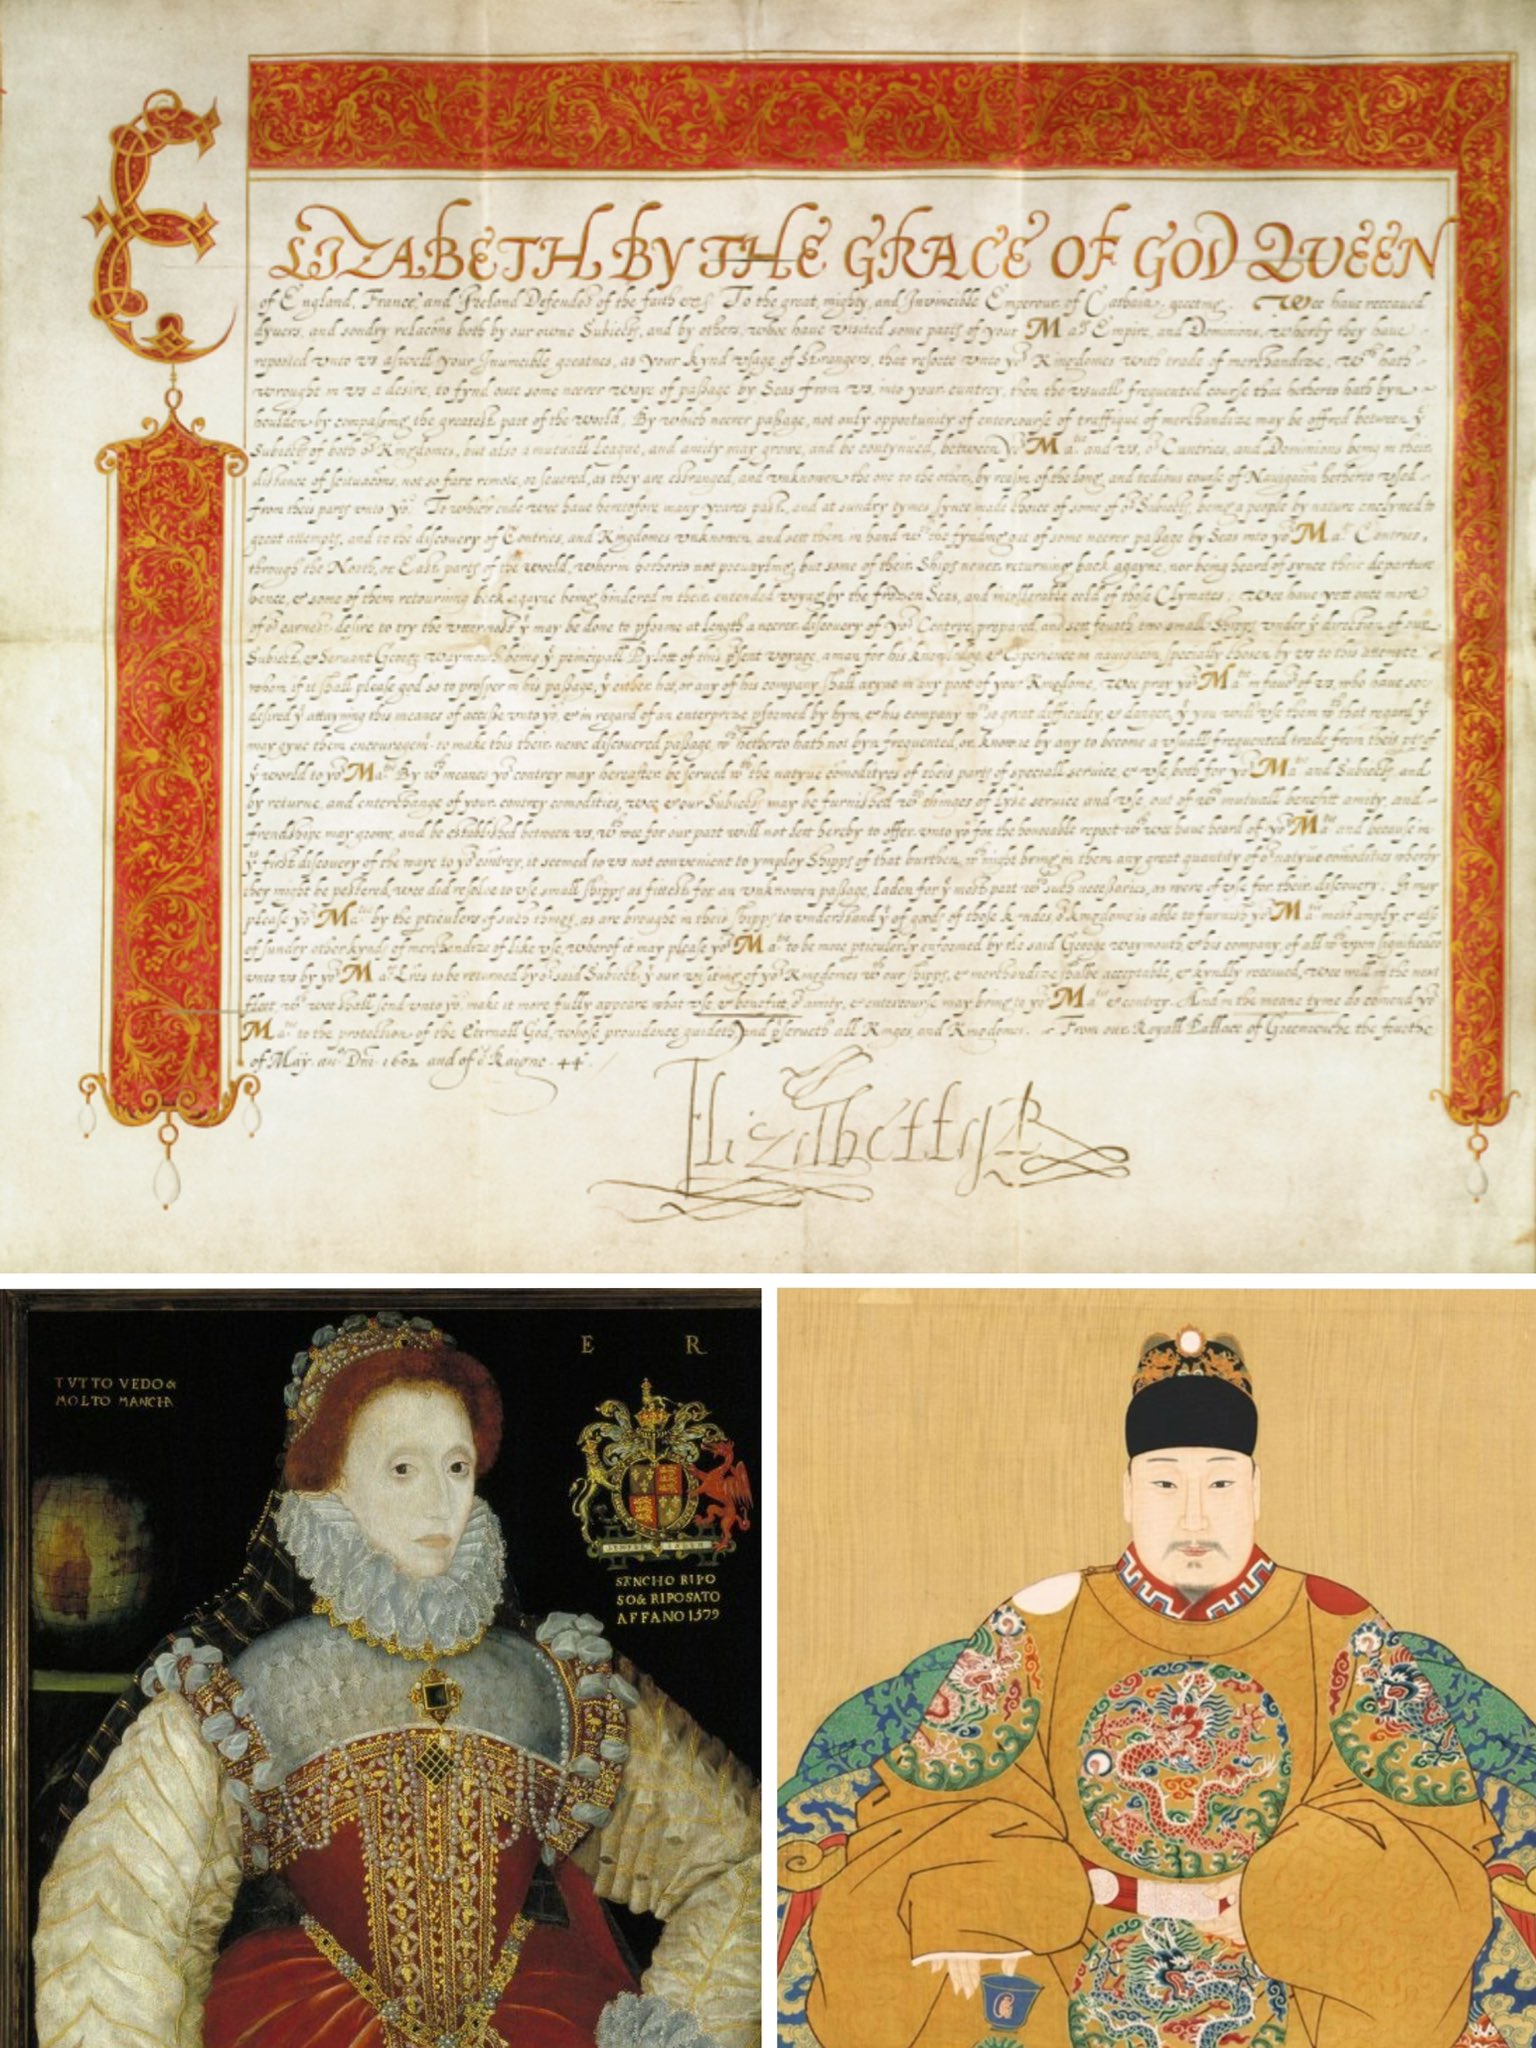 ELIZABETH BY THE GRACE OF GOD QVEEN
of England, France, and Ireland Defendor of the faith etc. To the great, mighty, and Invincible Emperour of Cathaia, greeting. Wee have receaued
dyuers, and sondry relacõns both by our owne Subiects, and by others, whoe have visited some parts of your Matꝭ Empire, and Dominions, wherby they have
reported vnto vs aswell your Invincible greatnes, as your kynd vsage of Strangers, that resorte vnto yor Kingdomes with trade of merchandize, wch hath
wrought in vs a desire, to fynd oute some neerer waye of passage by Seas from vs, into your cuntrey, then the vsuall frequented course that hetherto hath byn
houlden by compassing the greatest part of the world. By which neerer passage, not only opportunity of entercourse of traffique of merchandize may be offred between ye
Subiects of both or Kingdomes, but also a mutuall League, and amity may growe, and be contynued, between yor Matie and vs, or Cuntries, and Dominions being in their
distance of scituacõns, not so farr remote, or severed, as they are estranged, and vnknowen the one to the other, by reason of the long, and tedious course of Navigacõn hetherto vsed
from theis parts vnto yow. To which ende wee have heretofore many yeares past, and at sundry tymes synce made choice of some of or Subiects, being a people by nature enclyned to
great attempts, and to the discovery of Contries, and Kingdomes vnknowen, and sett them in hand wth the fynding out of some neerer passage by Seas into yor Matꝭ Contries,
through the North, or East parts of the world, wherin hetherto not preuayling, but some of their Ships never returning back agayne, nor being heard of synce their departure
hence, & some of them retourning back agayne being hindered in their entended voyage by the frozen Seas, and intollerable cold of those Clymates: wee have yett once more
of or earnest desire to try the vttermost yt may be done to pforme at length a neerer discovery of yor Contrye, prepared, and sett fourth two small Shipps vnder ye direction of our
Subiect, & Servant George Waymouth being ye principall Pylott of this pñt voyage, a man for his knowledge, & Experience in navigacõn specially chosen by vs to this attempte
whom if it shall please god so to prosper in his passage, yt either hee, or any of his company shall aryve in any port of your Kingdome, Wee pray yor Matie in favor of vs, who have soe
desired ye attayning this meanes of accesse vnto yow, & in regard of an enterprize pformed by hym, & his company wth so great difficulty, & danger, yt you will vse them wth that regard yt
may gyue them encouragemt. to make this their newe discovered passage, wch hetherto hath not byn frequented, or knowne by any to become a vsually frequented trade from theis pts of
ye world to yor Matie. By wch meanes yor contrey may hereafter be serued wth the natyue comodityes of theis parts of speciall service, & vse both for yor Matie and Subiects, and
by returne, and enterchange of your contrey comodities, wee & our Subiects may be furnished wth thinges of lyke service and vse, out of wch mutuall benefitt amity, and
frendshipe may growe, and be established between vs, wch wee for our part will not lett hereby to offer vnto yow for the honorable report wch wee have heard of yor Matie. and because in
ys first discovery of the waye to yor contrey, it seemed to vs not convenient to ymploy Shipps of that burthen, wch might bring in them any great quantity of or natyue comodities wherby
they might be pestered, wee did resolue to vse small shipps as fittest for an vnknowen passage, laden for ye most part wth such necessaries, as were of vse for their discovery; It may
please yor Matie by the pticulers of such things, as are brought in theis shipps to vnderstand yt of goods of those kindes or kingdome is able to furnish yor Matie most amply, & also
of sundry other kynds of merchandize of like vse, wherof it may please yor Matie to be more pticulerly enformed by the said George Waymouth, & his company, of all wch vpon significacõn
vnto vs by yor Matꝭ Lr̃es to be returned by or said Subiect, yt our visiting of yor Kingdomes wth our shipps, & merchandize shalbe acceptable, & kyndly receiued, wee will in the next
fleet, wch wee shall send vnto yow, make it more fully appeare what vse, & benefitt, or amity, & entercourse may bring to yor Matie & contrey. And in the meane tyme do comend yor
Matie to the protection of the eternall God, whose providence guideth, and p̃serueth all Kings, and Kingdomes. From our Royall Pallace of Greenwiche the fourthe
of May ano Dñi 1602 and of or Raigne 44.
Elizabeth R
TVTTO VEDO &
MOLTO MANCHA
E R
STANCHO RIPO
SO & RIPOSATO
AFFANO 1579